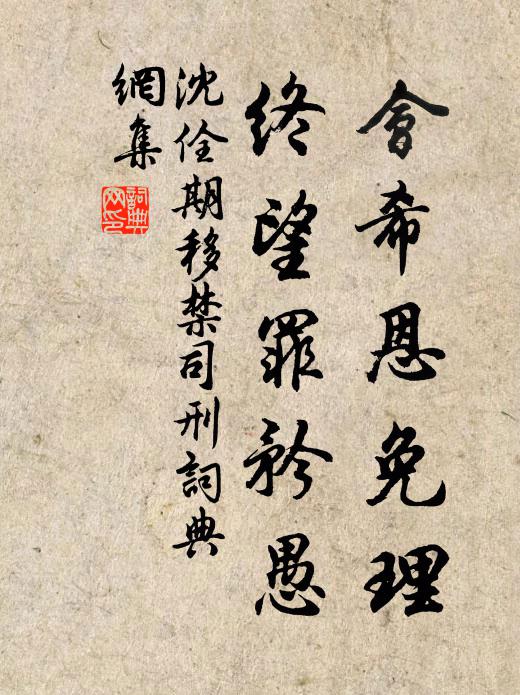 會希恩免理
終望罪矜愚
沈佺期移禁司刑詞典
網集
詞典網印